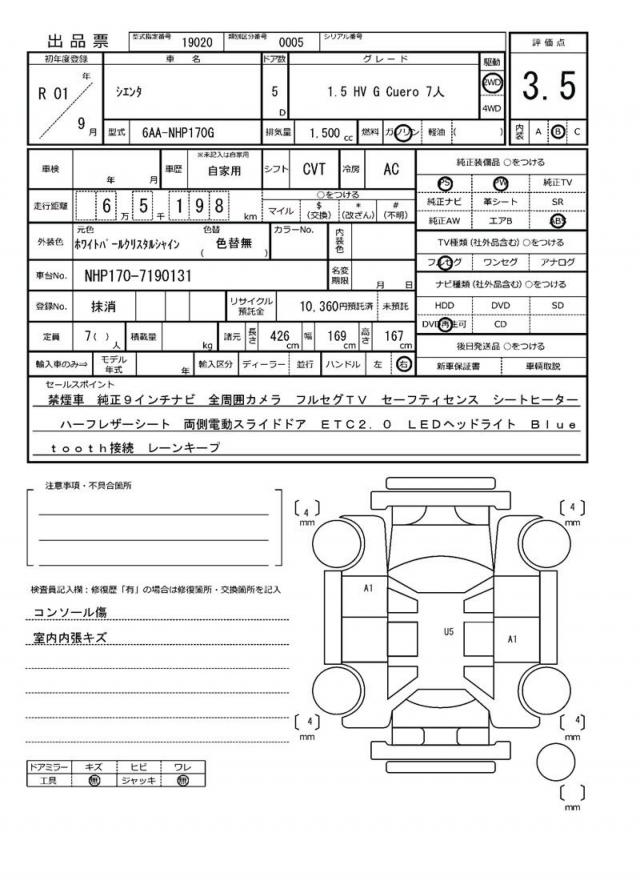 出品票 型式指定番号 19020 類別区分番号 0005 シリアル番号
評価点
3.5
初年度登録 車名 ドア数 グレード 駆動
R 01 年 9 月
シエンタ 5 D 1.5 HV G Cuero 7人 2WD 4WD
型式 6AA-NHP170G 排気量 1.500 cc 燃料 ガソリン 軽油 ( )
内装 A B C
車検 年 月 車歴 ※未記入は自家用 自家用 シフト CVT 冷房 AC
走行距離 6 万 5 千 1 9 8 km
○をつける
マイル $ (交換) * (改ざん) # (不明)
外装色 元色 ホワイトパールクリスタルシャイン 色替 ( 色替無 ) カラーNo. 内装色
車台No. NHP170-7190131 名変期限 月 日
登録No. 抹消 リサイクル預託金 10,360円預託済 未預託
定員 7( )人 積載量 kg 諸元 長さ 426 cm 幅 169 cm 高さ 167 cm
輸入車のみ⇒ モデル年式 年 輸入区分 ディーラー 並行 ハンドル 左 右
純正装備品 ○をつける
PS PW 純正TV
純正ナビ 革シート SR
純正AW エアB ABS
TV種類(社外品含む) ○をつける
フルセグ ワンセグ アナログ
ナビ種類(社外品含む) ○をつける
HDD DVD SD
DVD再生可 CD
後日発送品 ○をつける
新車保証書 車輌取説
セールスポイント
禁煙車 純正9インチナビ 全周囲カメラ フルセグTV セーフティセンス シートヒーター
ハーフレザーシート 両側電動スライドドア ETC2.0 LEDヘッドライト Blue
tooth接続 レーンキープ
注意事項・不具合箇所
検査員記入欄:修復歴「有」の場合は修復箇所・交換箇所を記入
コンソール傷
室内内張キズ
ドアミラー キズ ヒビ ワレ
工具 無 ジャッキ 無
4 mm
4 mm
A1
U5
A1
4 mm
4 mm
mm